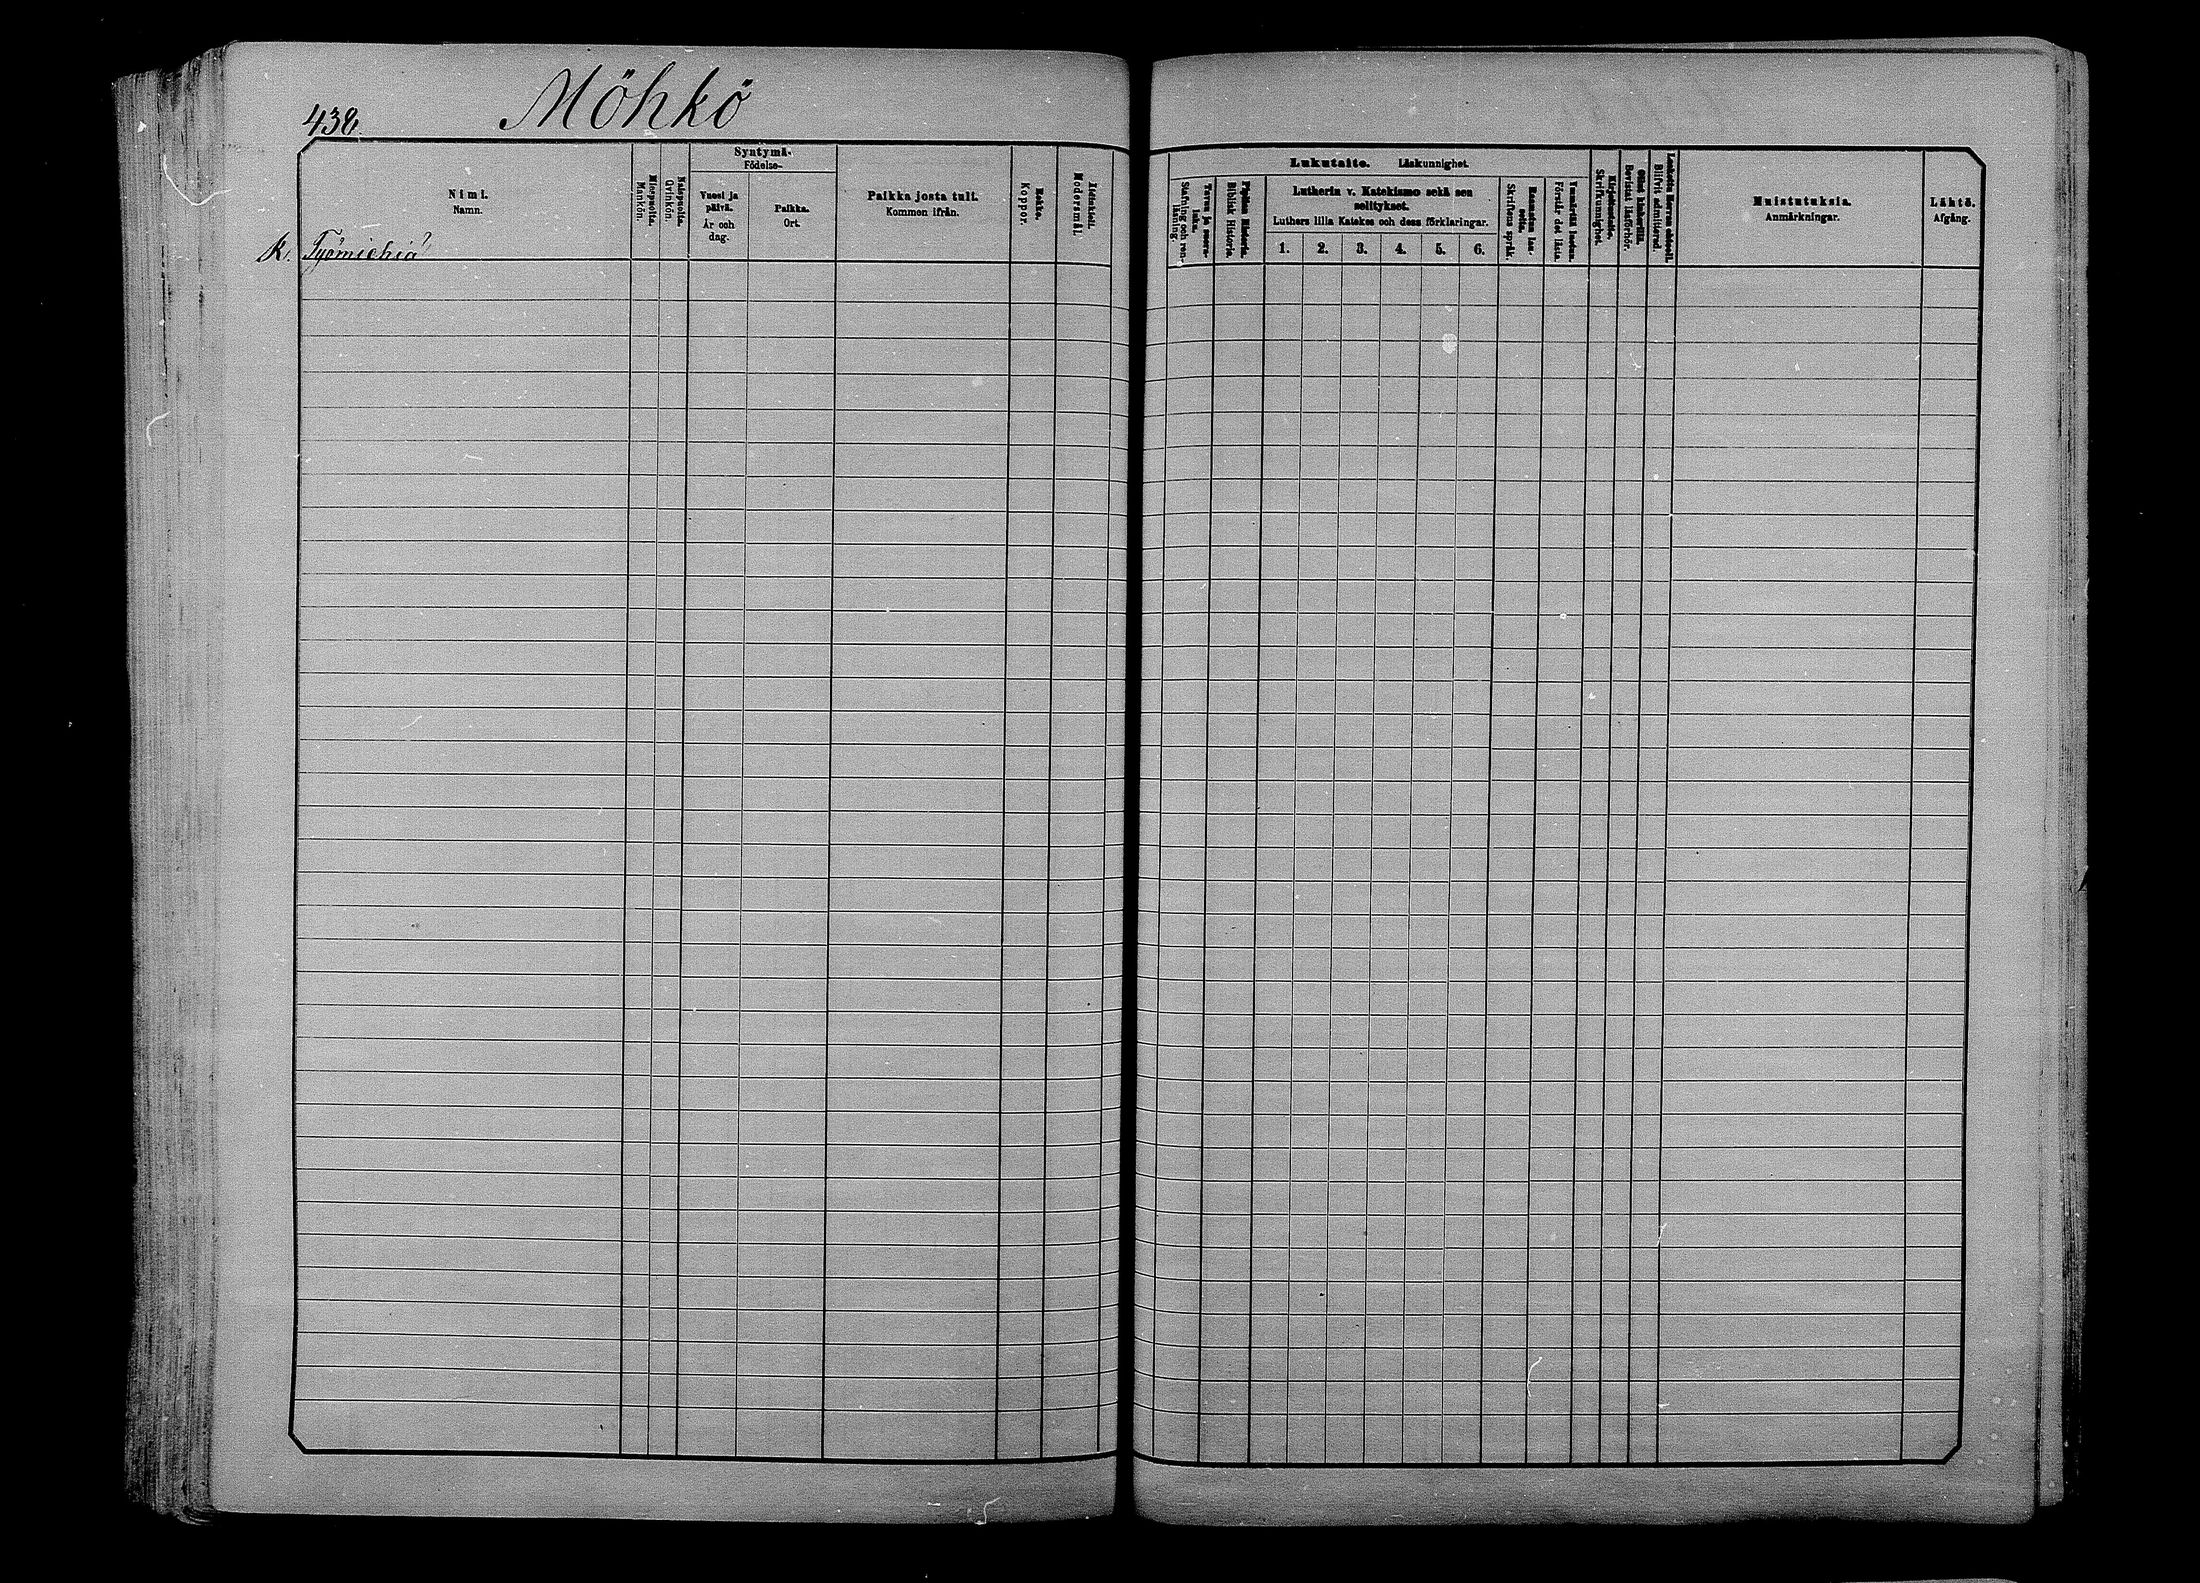 438.
Möhkö
Nimi.
Namn.
Miespuolta.
Mankön.
Naispuolta.
Qvinkön.
Syntymä-
Födelse-
Vuosi ja
päivä.
År och
dag.
Paikka.
Ort.
Paikka josta tuli.
Kommen ifrån.
Rokko.
Koppor.
Äidinkieli.
Modersmål.
K. Työmiehiä
Lukutaito. Läskunnighet.
Tavuu ja suora-
luku.
Stafning och ren-
läsning.
Piplian Historia.
Biblisk Historia.
Lutherin v. Katekismo sekä sen
selitykset.
Luthers lilla Katekes och dess förklaringar.
1. 2. 3. 4. 5. 6.
Raamatun lau-
seita.
Skriftens språk.
Ymmärtää luetun.
Förstår det lästa.
Kirjoitustaito.
Skrifkunnighet.
Ollut lukurilla.
Bevistat läsförhör.
Laskettu Herran ehtool.
Blifvit admitterad.
Muistutuksia.
Anmärkningar.
Lähtö.
Afgång.